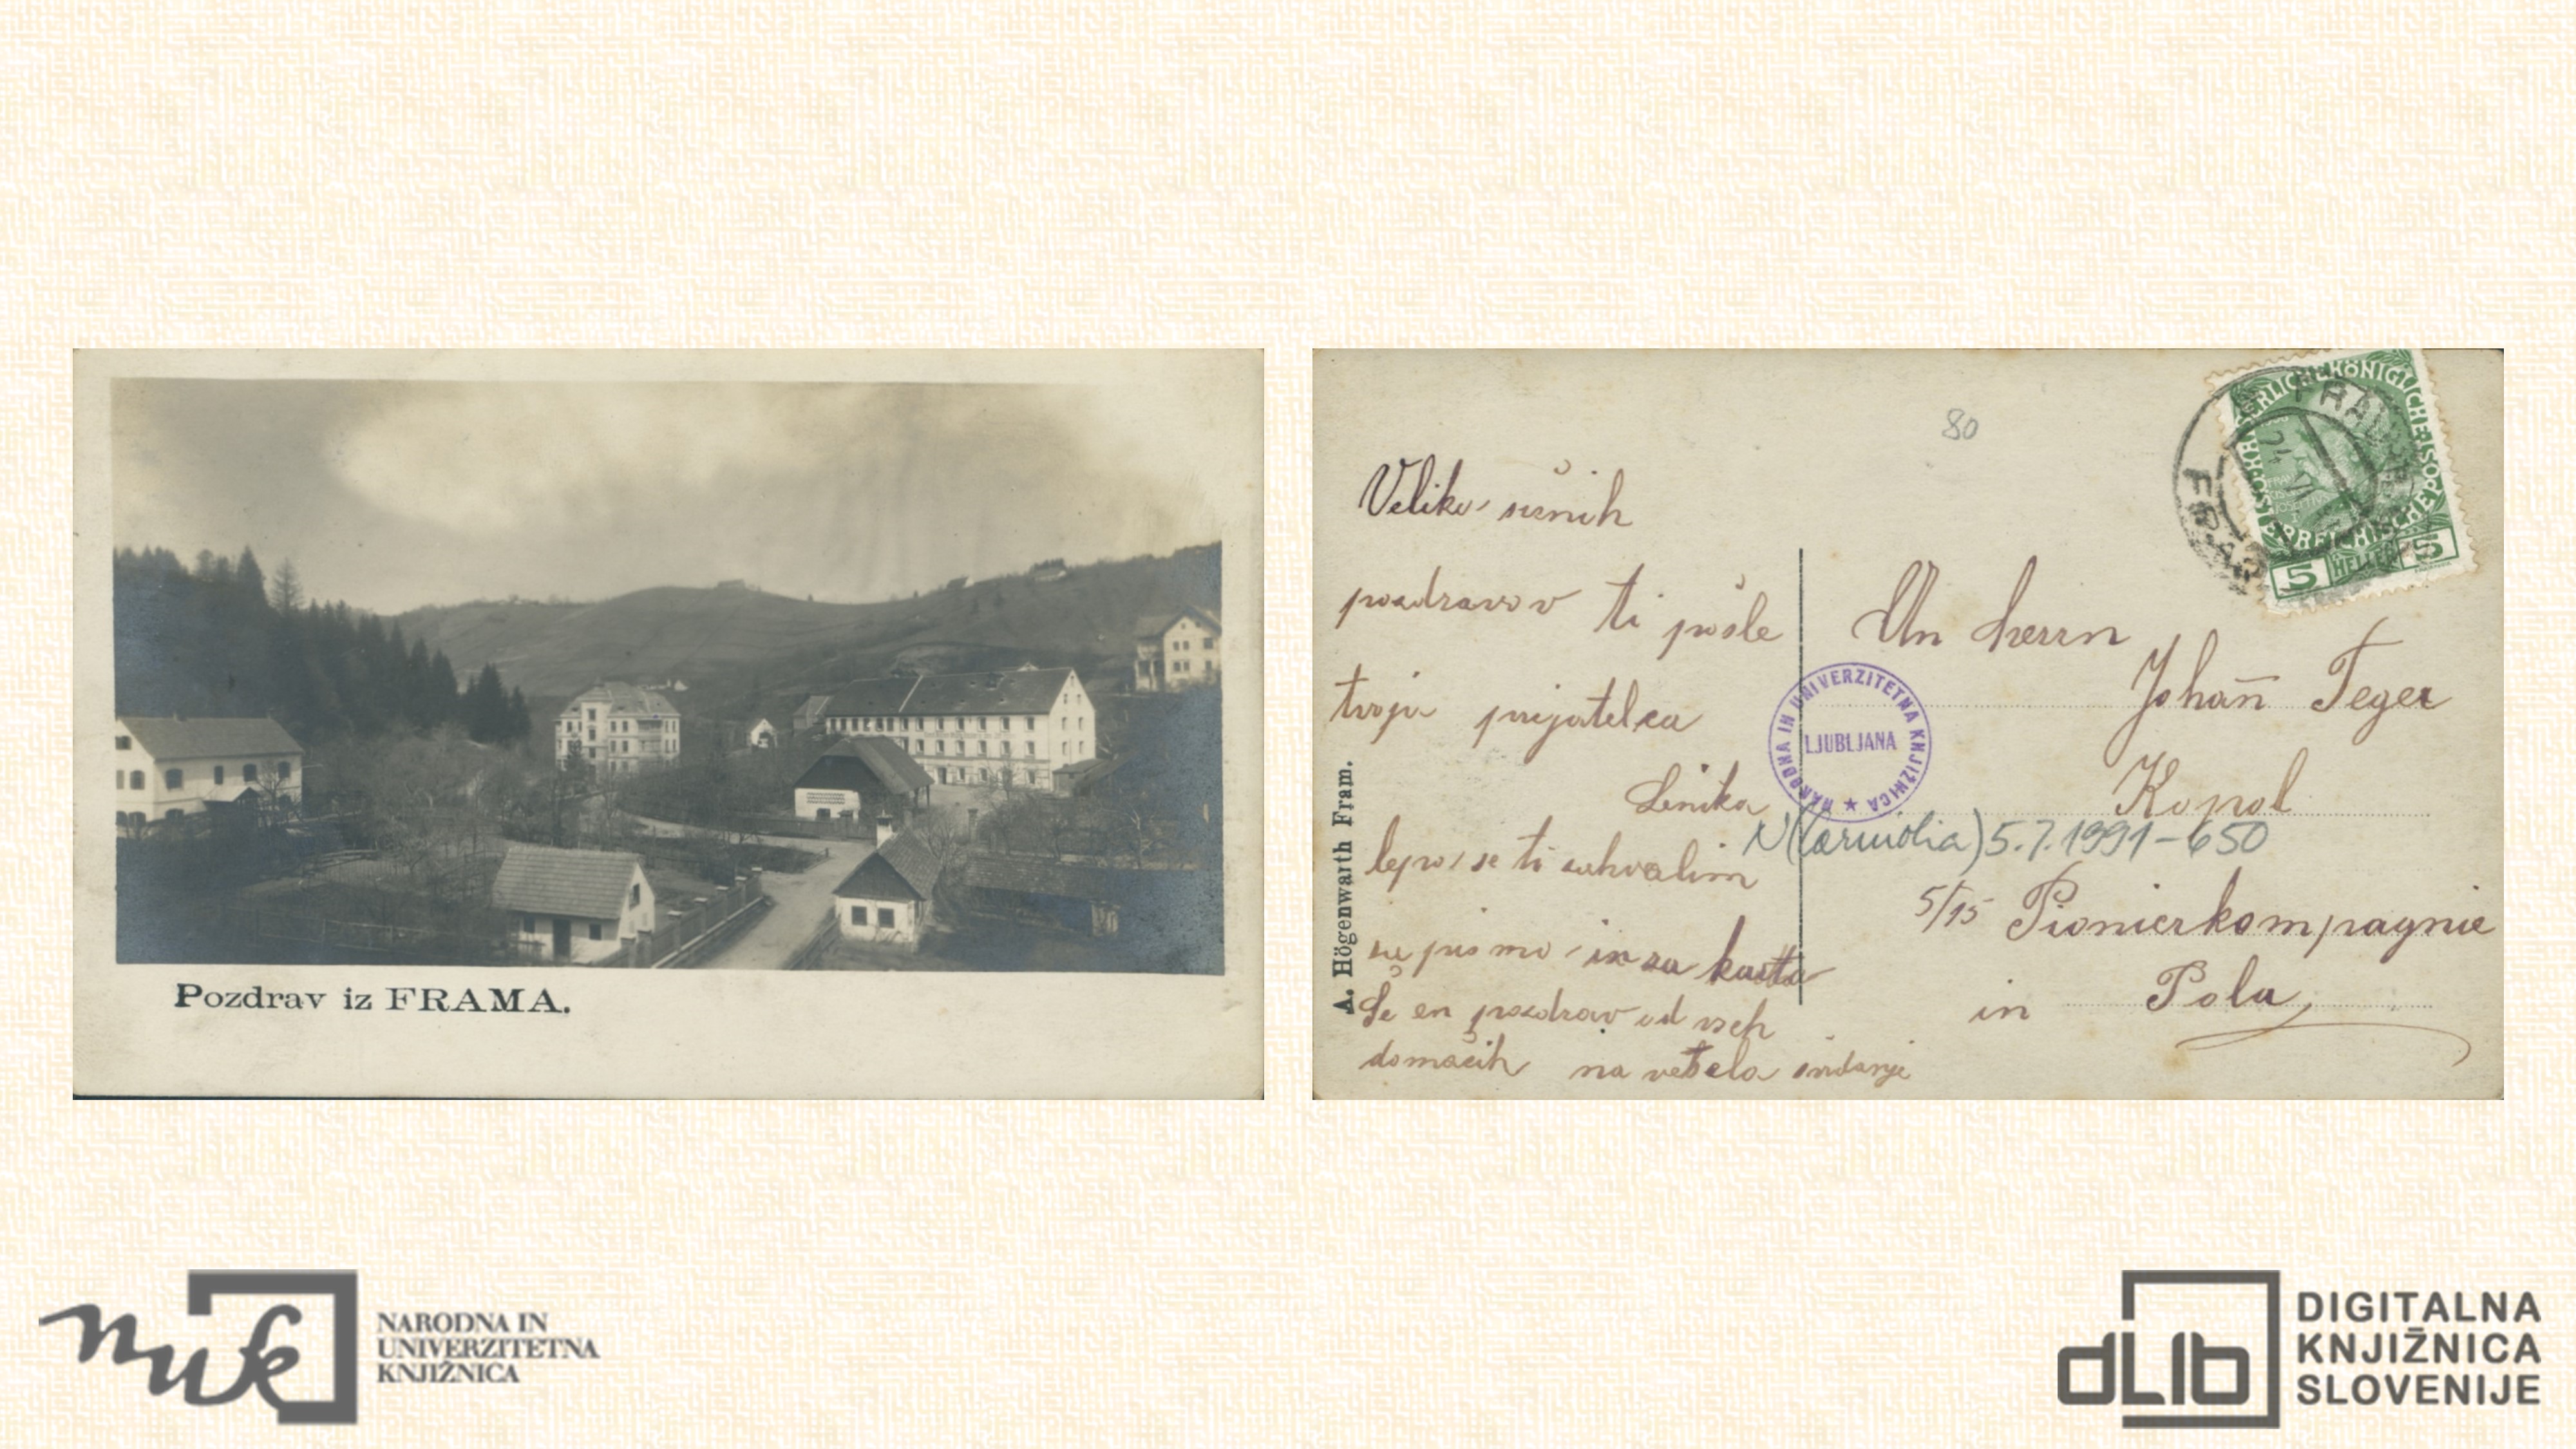 Pozdrav iz FRAMA.
A. Högenwarth Fram.
80
Veliko srčnih
pozdravov ti pošle
tvoja prijatelca
Lenika
lepo se ti zahvalim
za pismo in za karto
Še en pozdrav od vseh
domačih na vesela svidanje
An herrn
Johan̄ Feger
Kopol
N(Carniolia) 5.7.1991-650
5/15 Pionierkompagnie
in Pola,
NARODNA IN UNIVERZITETNA KNJIŽNICA
LJUBLJANA
5 HELLER 5
NARODNA IN
UNIVERZITETNA
KNJIŽNICA
dLib
DIGITALNA
KNJIŽNICA
SLOVENIJE
nuk